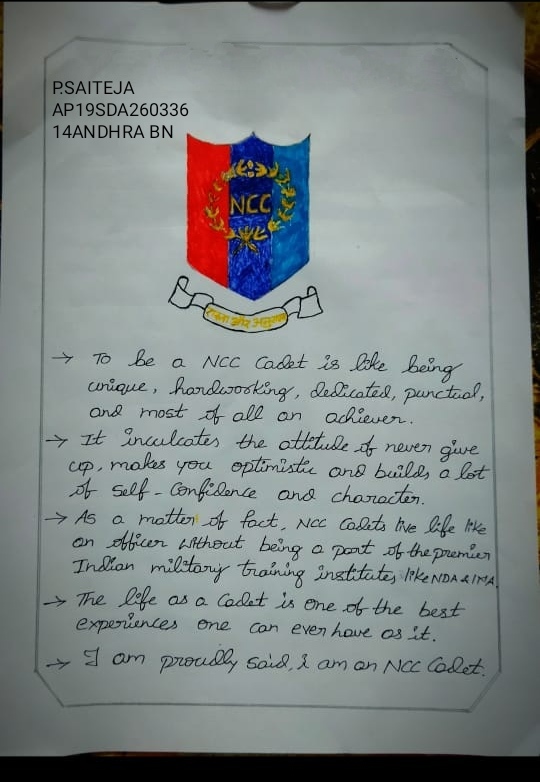 P.SAITEJA
AP19SDA260336
14ANDHRA BN
NCC
एकता और अनुशासन
→ To be a NCC Cadet is like being
unique, hardworking, dedicated, punctual,
and most of all an achiever.
→ It inculcates the attitude of never give
up, makes you optimistic and builds a lot
of self-Confidence and character.
→ As a matter of fact, NCC Cadets live life like
an officer without being a part of the premier
Indian military training institutes, like NDA & IMA.
→ The life as a Cadet is one of the best
experiences one can ever have as it.
→ I am proudly said, i am an NCC Cadet.